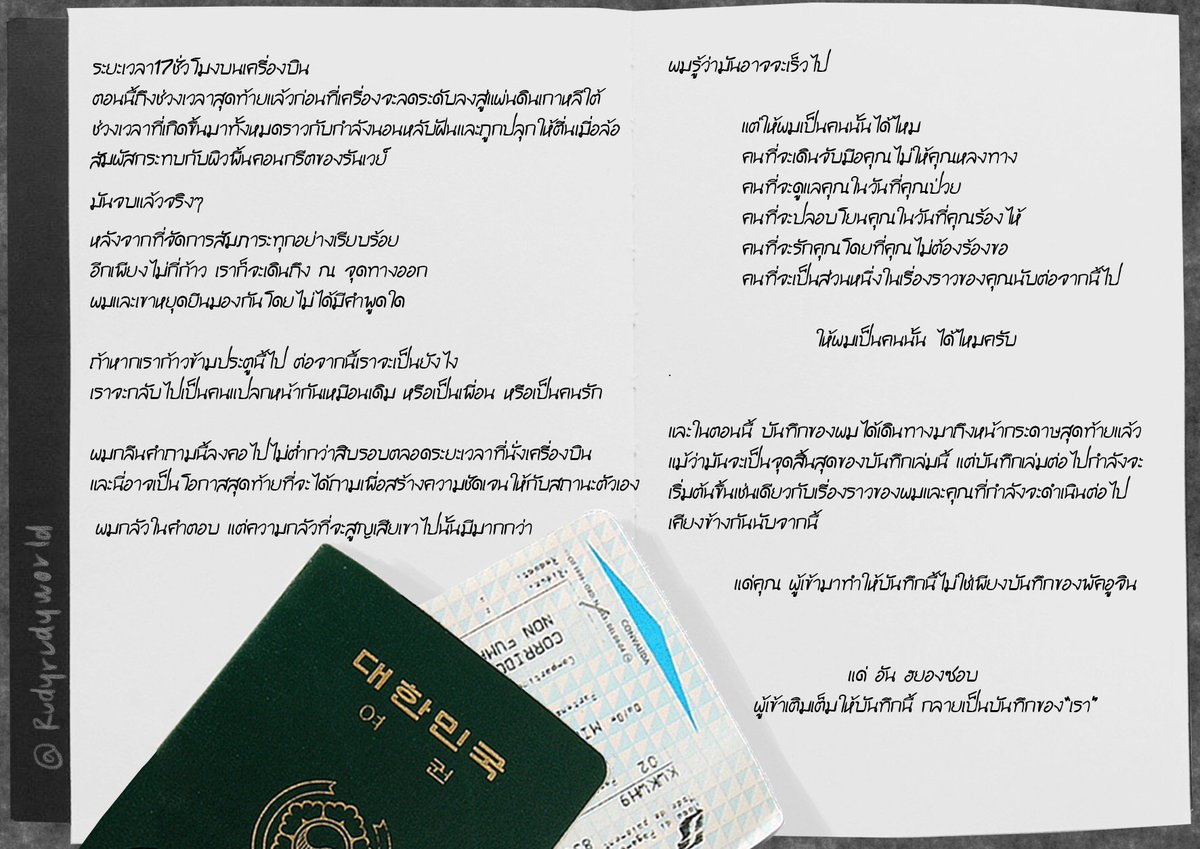 ระยะเวลา17ชั่วโมงบนเครื่องบิน
ตอนนี้ถึงช่วงเวลาสุดท้ายแล้วก่อนที่เครื่องจะลดระดับลงสู่แผ่นดินเกาหลีใต้
ช่วงเวลาที่เกิดขึ้นมาทั้งหมดราวกับกำลังนอนหลับฝันและถูกปลุกให้ตื่นเมื่อล้อ
สัมผัสกระทบกับผิวพื้นคอนกรีตของรันเวย์
มันจบแล้วจริงๆ
หลังจากที่จัดการสัมภาระทุกอย่างเรียบร้อย
อีกเพียงไม่กี่ก้าว เราก็จะเดินถึง ณ จุดทางออก
ผมและเขาหยุดยืนมองกันโดยไม่ได้มีคำพูดใด
ถ้าหากเราก้าวข้ามประตูนี้ไป ต่อจากนี้เราจะเป็นยังไง
เราจะกลับไปเป็นคนแปลกหน้ากันเหมือนเดิม หรือเป็นเพื่อน หรือเป็นคนรัก
ผมกลืนคำถามนี้ลงคอไปไม่ต่ำกว่าสิบรอบตลอดระยะเวลาที่นั่งเครื่องบิน
และนี่อาจเป็นโอกาสสุดท้ายที่จะได้ถามเพื่อสร้างความชัดเจนให้กับสถานะตัวเอง
ผมกลัวในคำตอบ แต่ความกลัวที่จะสูญเสียเขาไปนั้นมีมากกว่า
ผมรู้ว่ามันอาจจะเร็วไป
แต่ให้ผมเป็นคนนั้นได้ไหม
คนที่จะเดินจับมือคุณไม่ให้คุณหลงทาง
คนที่จะดูแลคุณในวันที่คุณป่วย
คนที่จะปลอบโยนคุณในวันที่คุณร้องไห้
คนที่จะรักคุณโดยที่คุณไม่ต้องร้องขอ
คนที่จะเป็นส่วนหนึ่งในเรื่องราวของคุณนับต่อจากนี้ไป
ให้ผมเป็นคนนั้น ได้ไหมครับ
.
และในตอนนี้ บันทึกของผมได้เดินทางมาถึงหน้ากระดาษสุดท้ายแล้ว
แม้ว่ามันจะเป็นจุดสิ้นสุดของบันทึกเล่มนี้ แต่บันทึกเล่มต่อไปกำลังจะ
เริ่มต้นขึ้นเช่นเดียวกับเรื่องราวของผมและคุณที่กำลังจะดำเนินต่อไป
เคียงข้างกันนับจากนี้
แด่คุณ ผู้เข้ามาทำให้บันทึกนี้ไม่ใช่เพียงบันทึกของพัคอูจิน
แด่ อัน ฮยองซอบ
ผู้เข้าเติมเต็มให้บันทึกนี้ กลายเป็นบันทึกของ"เรา"
@Rudyrudyworld
대한민국
여
권
CONVALIDA
CORRIDO
NON FUMA
02
KLKLH9